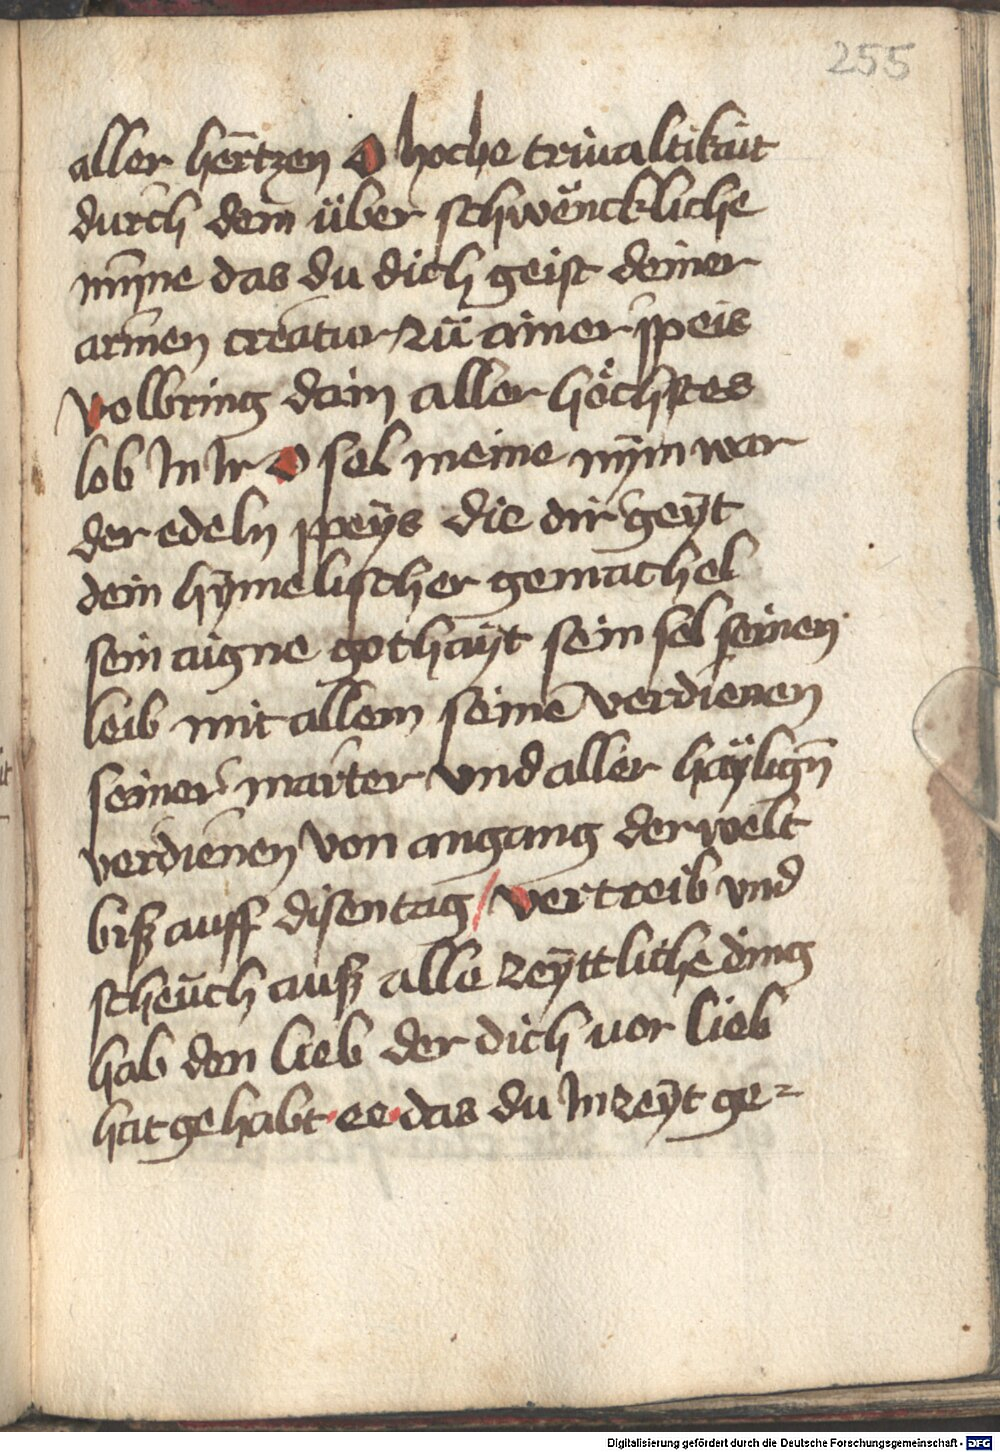 255
aller hērtzen O hoche triualtikait
durch dein über schwēnckliche
mȳne das du dich geist deiner
armen creatur zū ainer speis
volbring dain aller höchstes
lob In Ir O sel meine nym war
der edeln speÿs die dir geÿt
dein hÿmelischer gemachel
sein aigne gothaÿt sein sel seinen
leib mit allem seinē verdienen
seiner marter vnd aller haÿligñ
verdienen von angang der welt
bisz auff disen tag / vertreib vnd
scheüch ausz alle zeÿttliche ding
hab den lieb der dich vor lieb
hat gehabt · ee · das du In zeÿt ge=
Digitalisierung gefördert durch die Deutsche Forschungsgemeinschaft - DFG